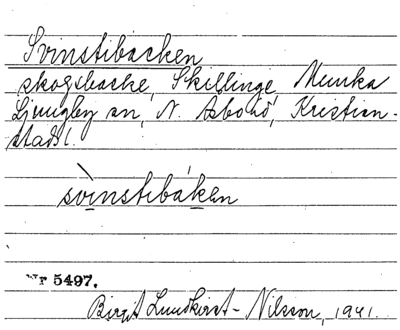 Svinstibacken
skogsbacke, Skillinge, Munka
Ljungby sn, N. Åsbo hd, Kristian-
stads l.
svi̱nstibák̲en
Nr 5497.
Birgit Lundkvist-Nilsson, 1941.